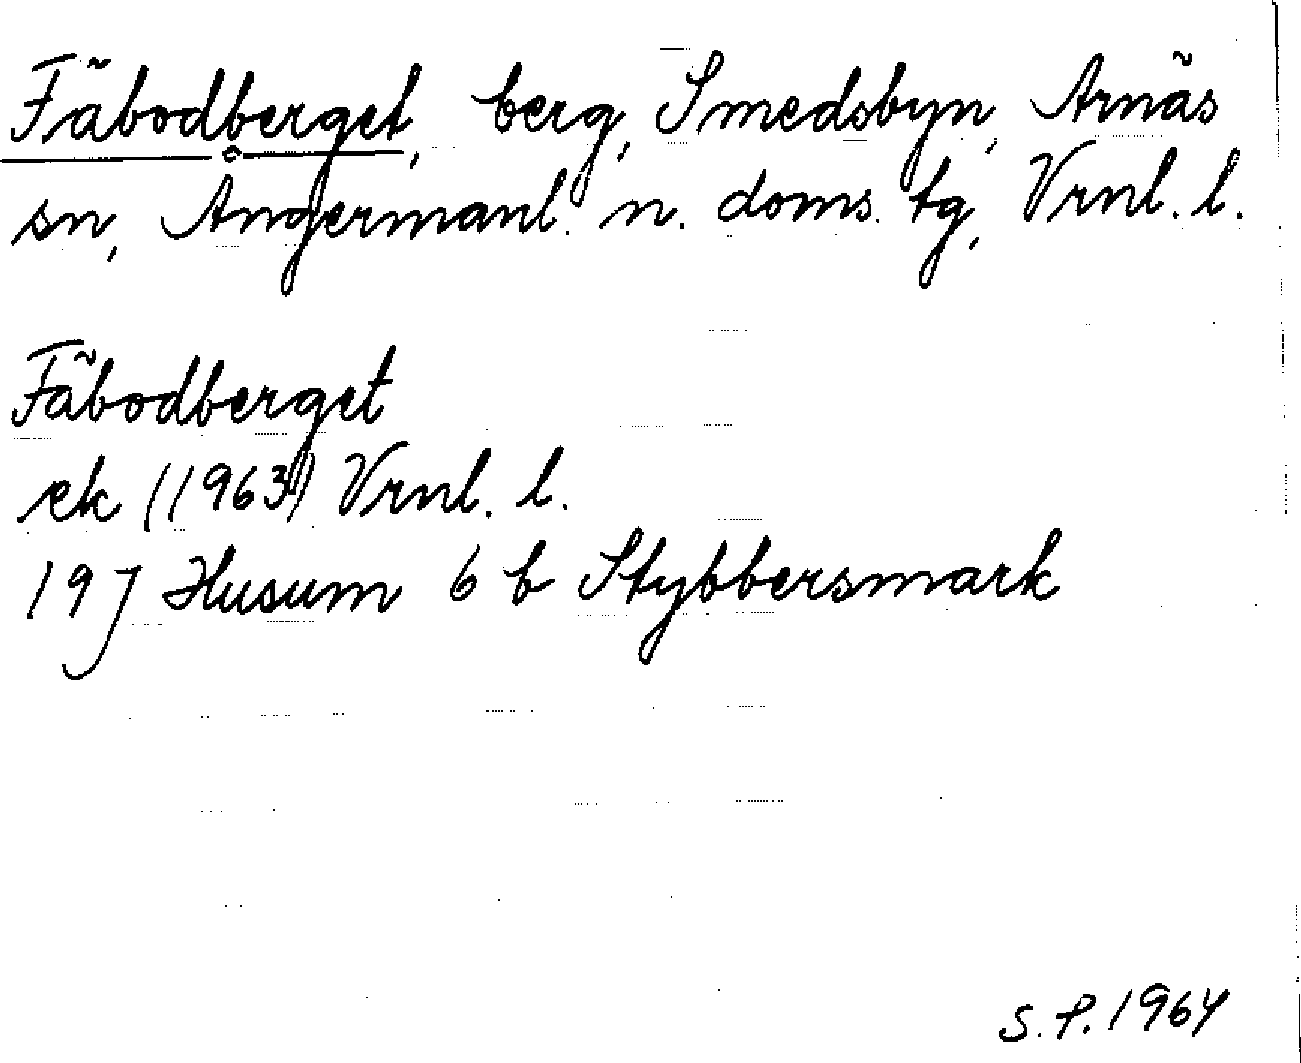 Fäbodberget, berg, Smedsbyn, Arnäs
sn, Ångermanl. n. doms. tg, Vrnl. l.
Fäbodberget
ek (1963) Vrnl. l.
19J Husum 6 b Stybbersmark
S. P. 1964